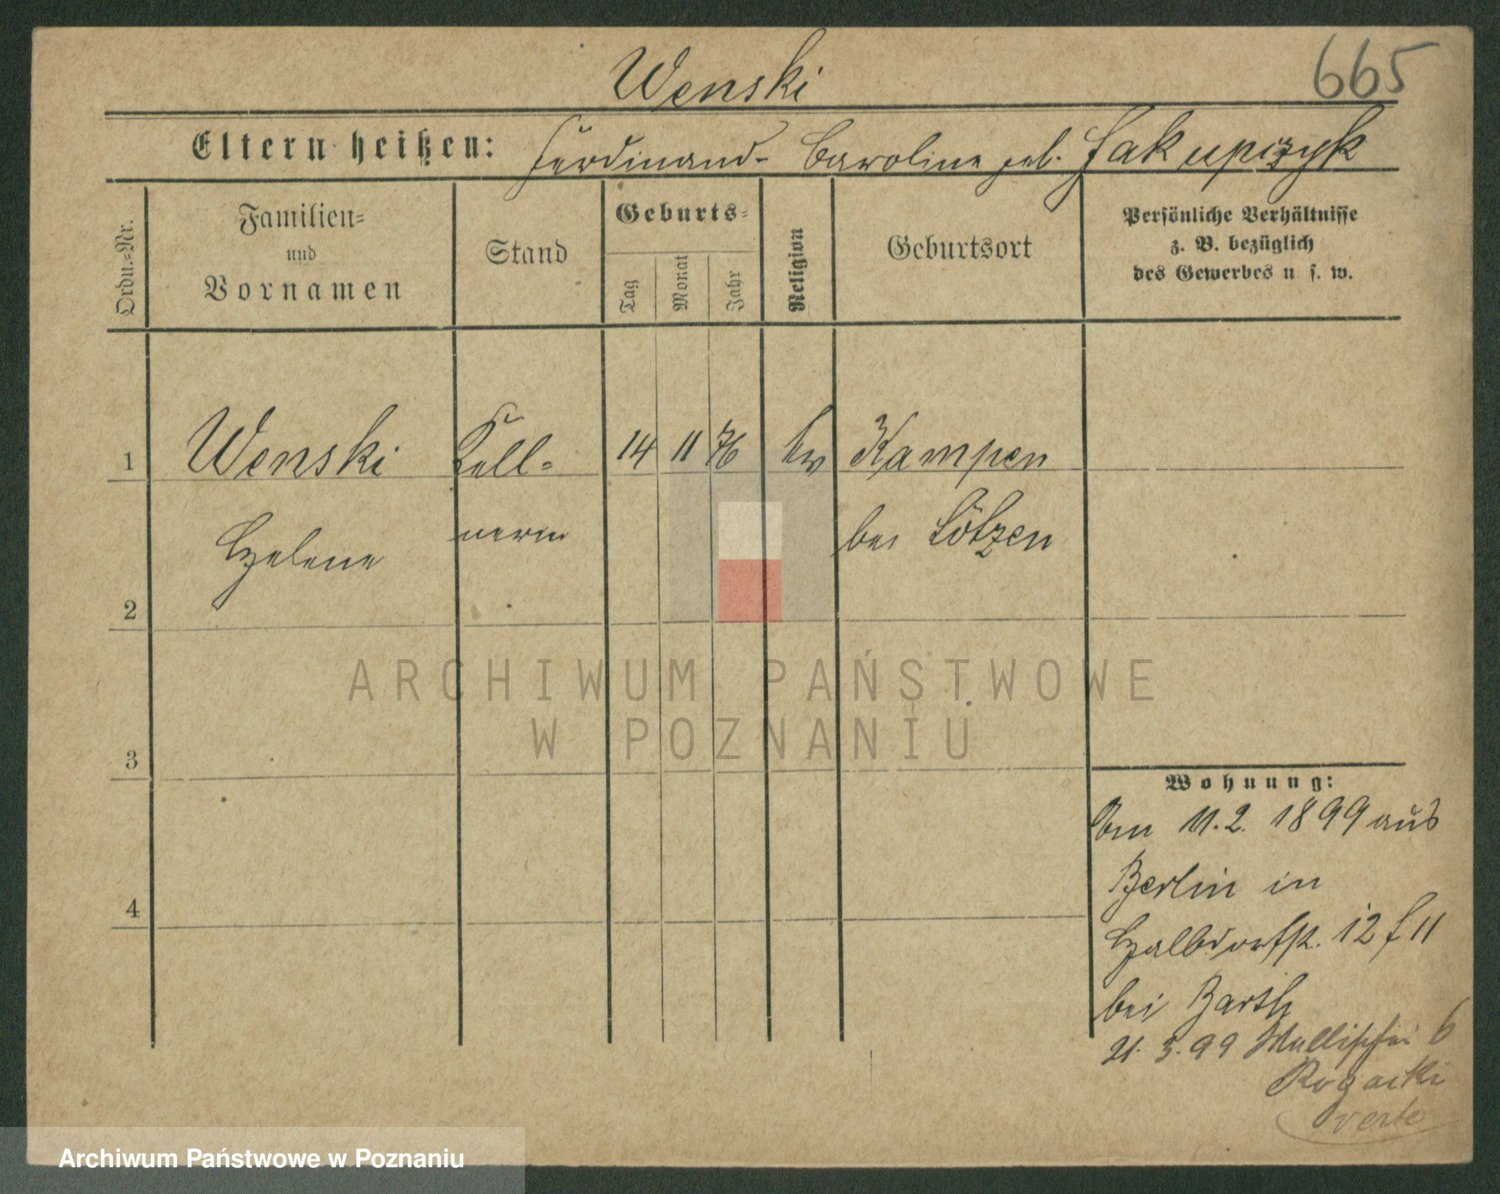 Wenski
665
Eltern heißen: Ferdinand - Caroline geb. Jakupczyk
Ordn.-Nr.
Familien-
und
Vornamen
Stand
Geburts-
Tag
Monat
Jahr
Religion
Geburtsort
Persönliche Verhältnisse
z. B. bezüglich
des Gewerbes u. s. w.
1 Wenski Kell- 14 11 76 ev Kampen
Helene nerin bei Lötzen
2
3
4
ARCHIWUM PAŃSTWOWE
W POZNANIU
Wohnung:
Am 11.2. 1899 aus
Berlin in
Halbdorfstr. 12 f 11
bei Barth
21. 3. 99 6
Rogacki
verte
Archiwum Państwowe w Poznaniu